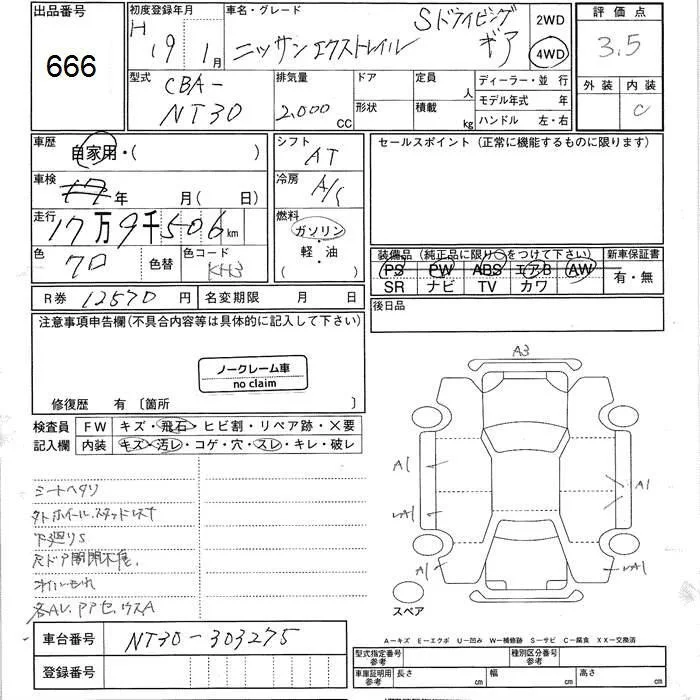 出品番号 初度登録年月 車名・グレード 2WD 評価点
666 H 19 1月 ニッサン エクストレイル Sドライビングギア 4WD 3.5
型式 排気量 ドア 定員 ディーラー・並行 外装 内装
CBA- 人 モデル年式 年 C
NT30 2,000 CC 形状 積載 kg ハンドル 左・右
車歴 自家用・( ) シフト AT セールスポイント (正常に機能するものに限ります)
車検 17年 月( 日) 冷房 A/C
走行 17万9千506km 燃料 ガソリン
軽・油
( )
色 クロ 色替 色コード KH3
装備品 (純正品に限り○をつけて下さい) 新車保証書
PS PW ABS エアB AW 有・無
SR ナビ TV カワ
R券 12570円 名変期限 月 日 後日品
注意事項申告欄(不具合内容等は具体的に記入して下さい)
ノークレーム車
no claim
修復歴 有 〔箇所 〕
検査員 FW キズ・飛石・ヒビ割・リペア跡・×要
記入欄 内装 キズ・汚レ・コゲ・穴・スレ・キレ・破レ
シートヘタリ
下廻りS
Rドア開閉不良.
オイルもれ
A3
A1
A1
A1
A1
スペア
A-キズ E-エクボ U-凹み W-補修跡 S-サビ C-腐食 XX-交換済
車台番号 NT30-303275
登録番号
型式指定番号 参考 種別区分番号 参考
車庫証明用 参考 長さ cm 幅 cm 高さ cm